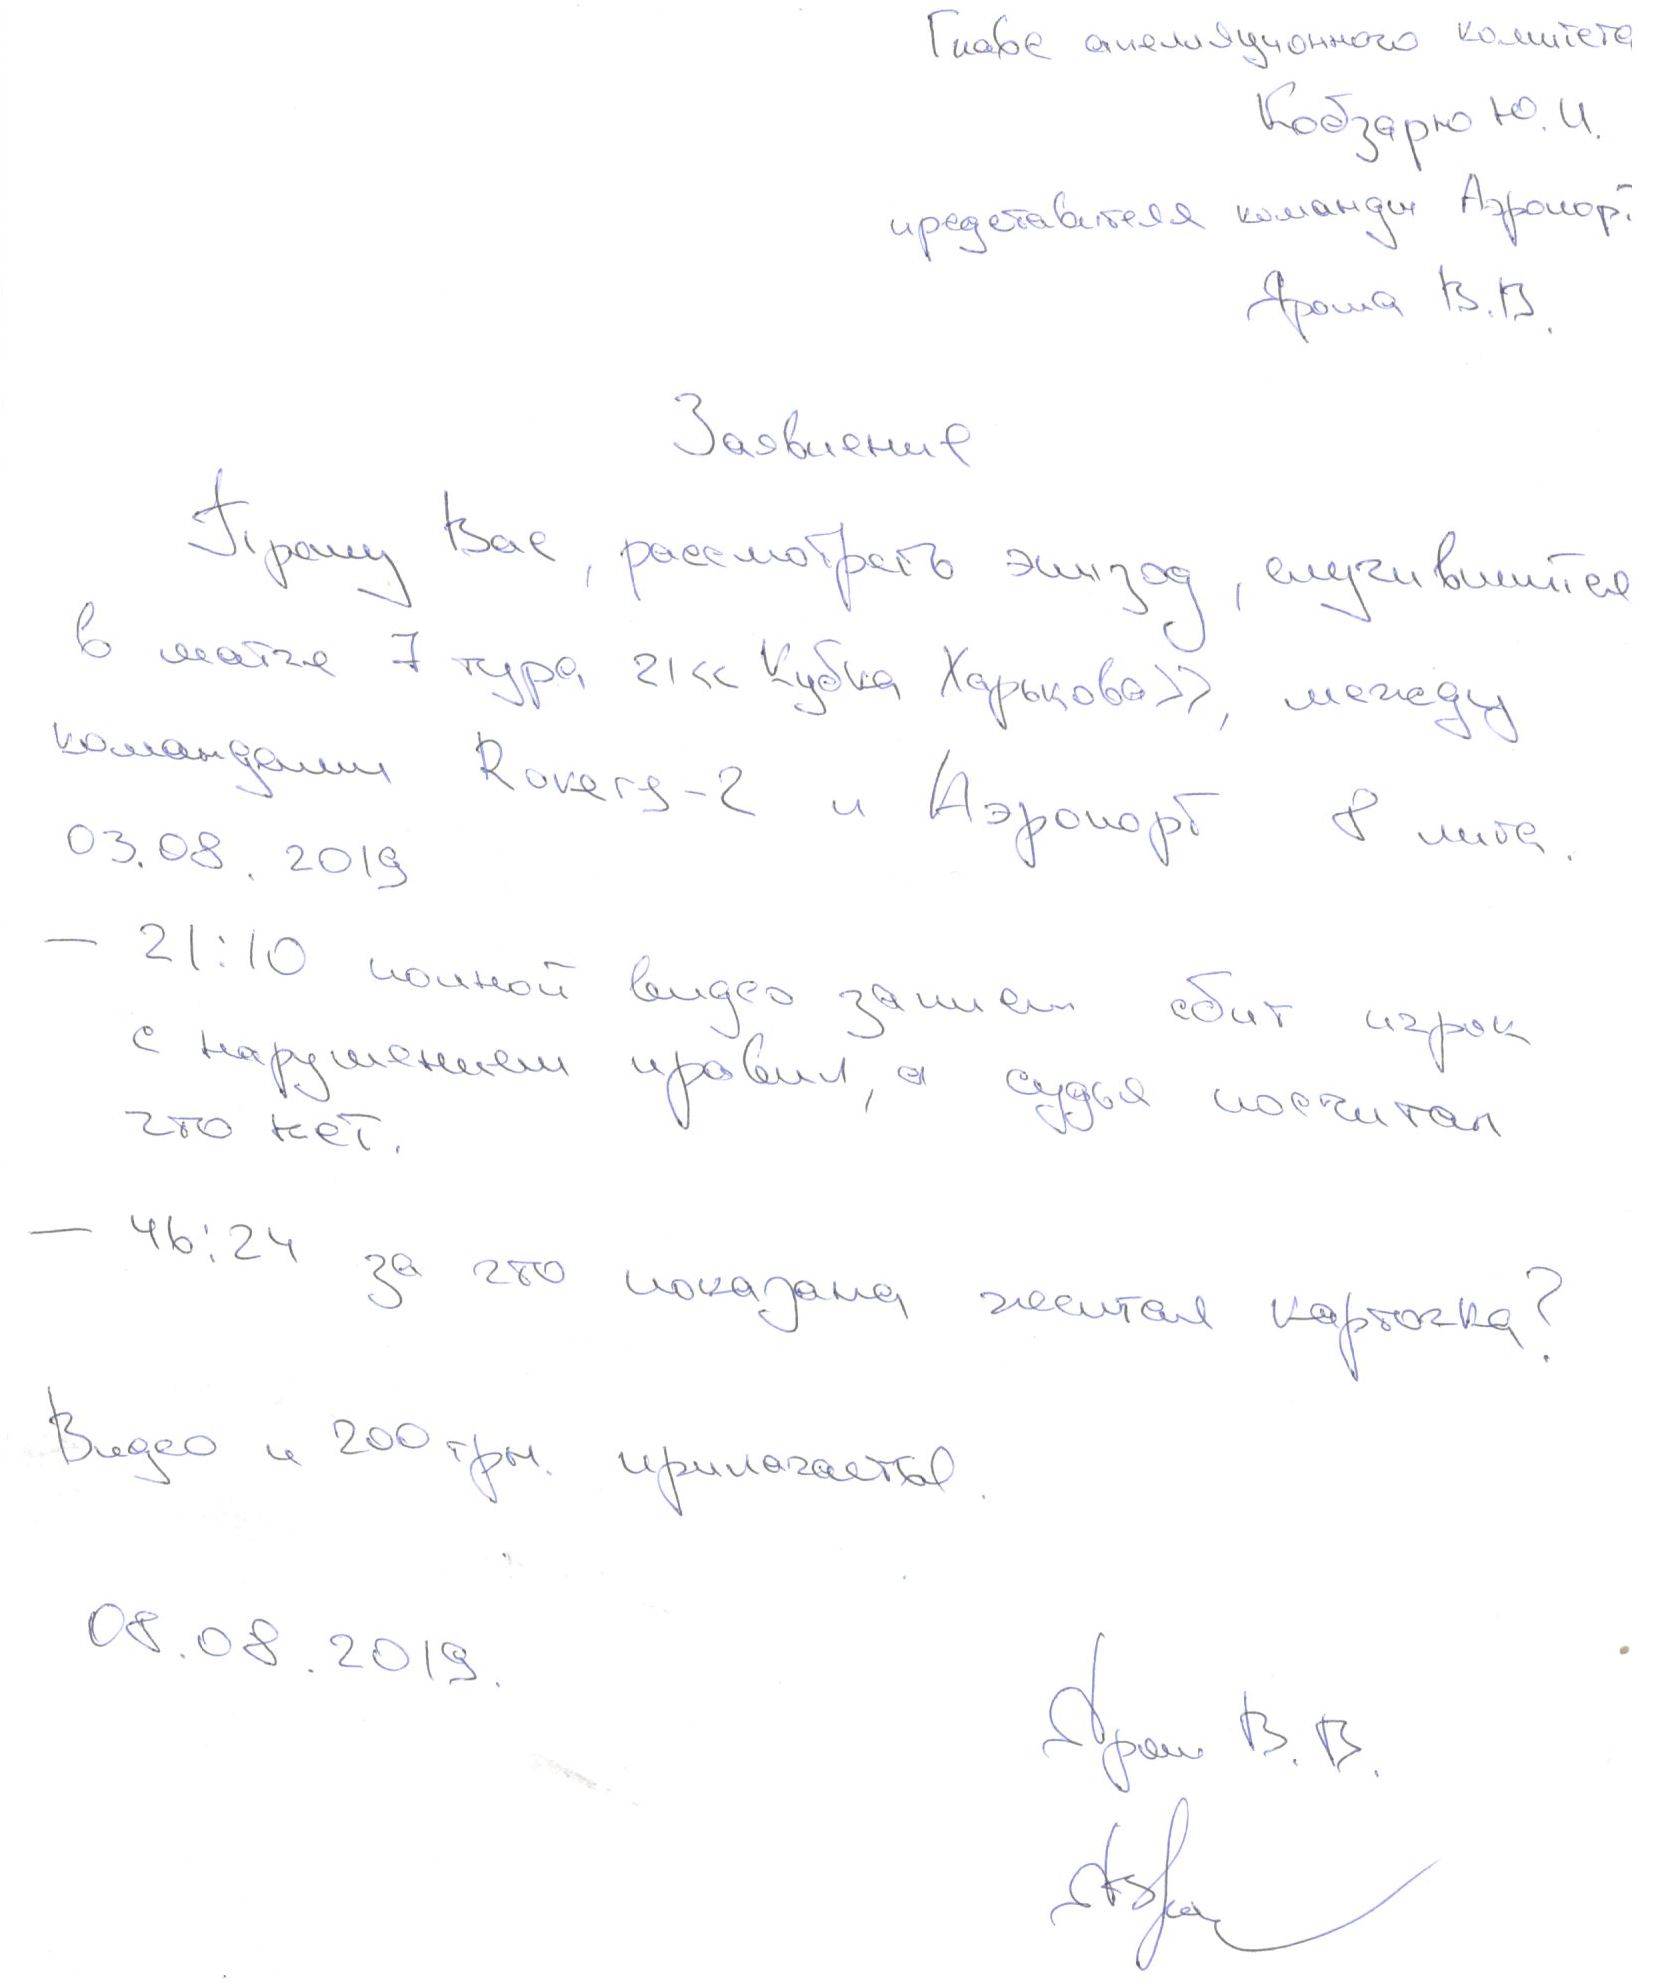 Главе апелляционного комитета
Кобзарю Ю.И.
представителя команды Аэропорт
Яроша В.В.
Заявление
Прошу Вас, рассмотреть эпизод, случившийся
в матче 7 тура 21 «Кубка Харькова», между
командами Rovers-2 и Аэропорт 8 лига.
03.08.2019
— 21:10 полной видео записи сбит игрок
с нарушением правил, а судья посчитал
что нет.
— 46:24 за что показана желтая карточка?
Видео и 200 грн. прилагается.
08.08.2019.
Ярош В.В.